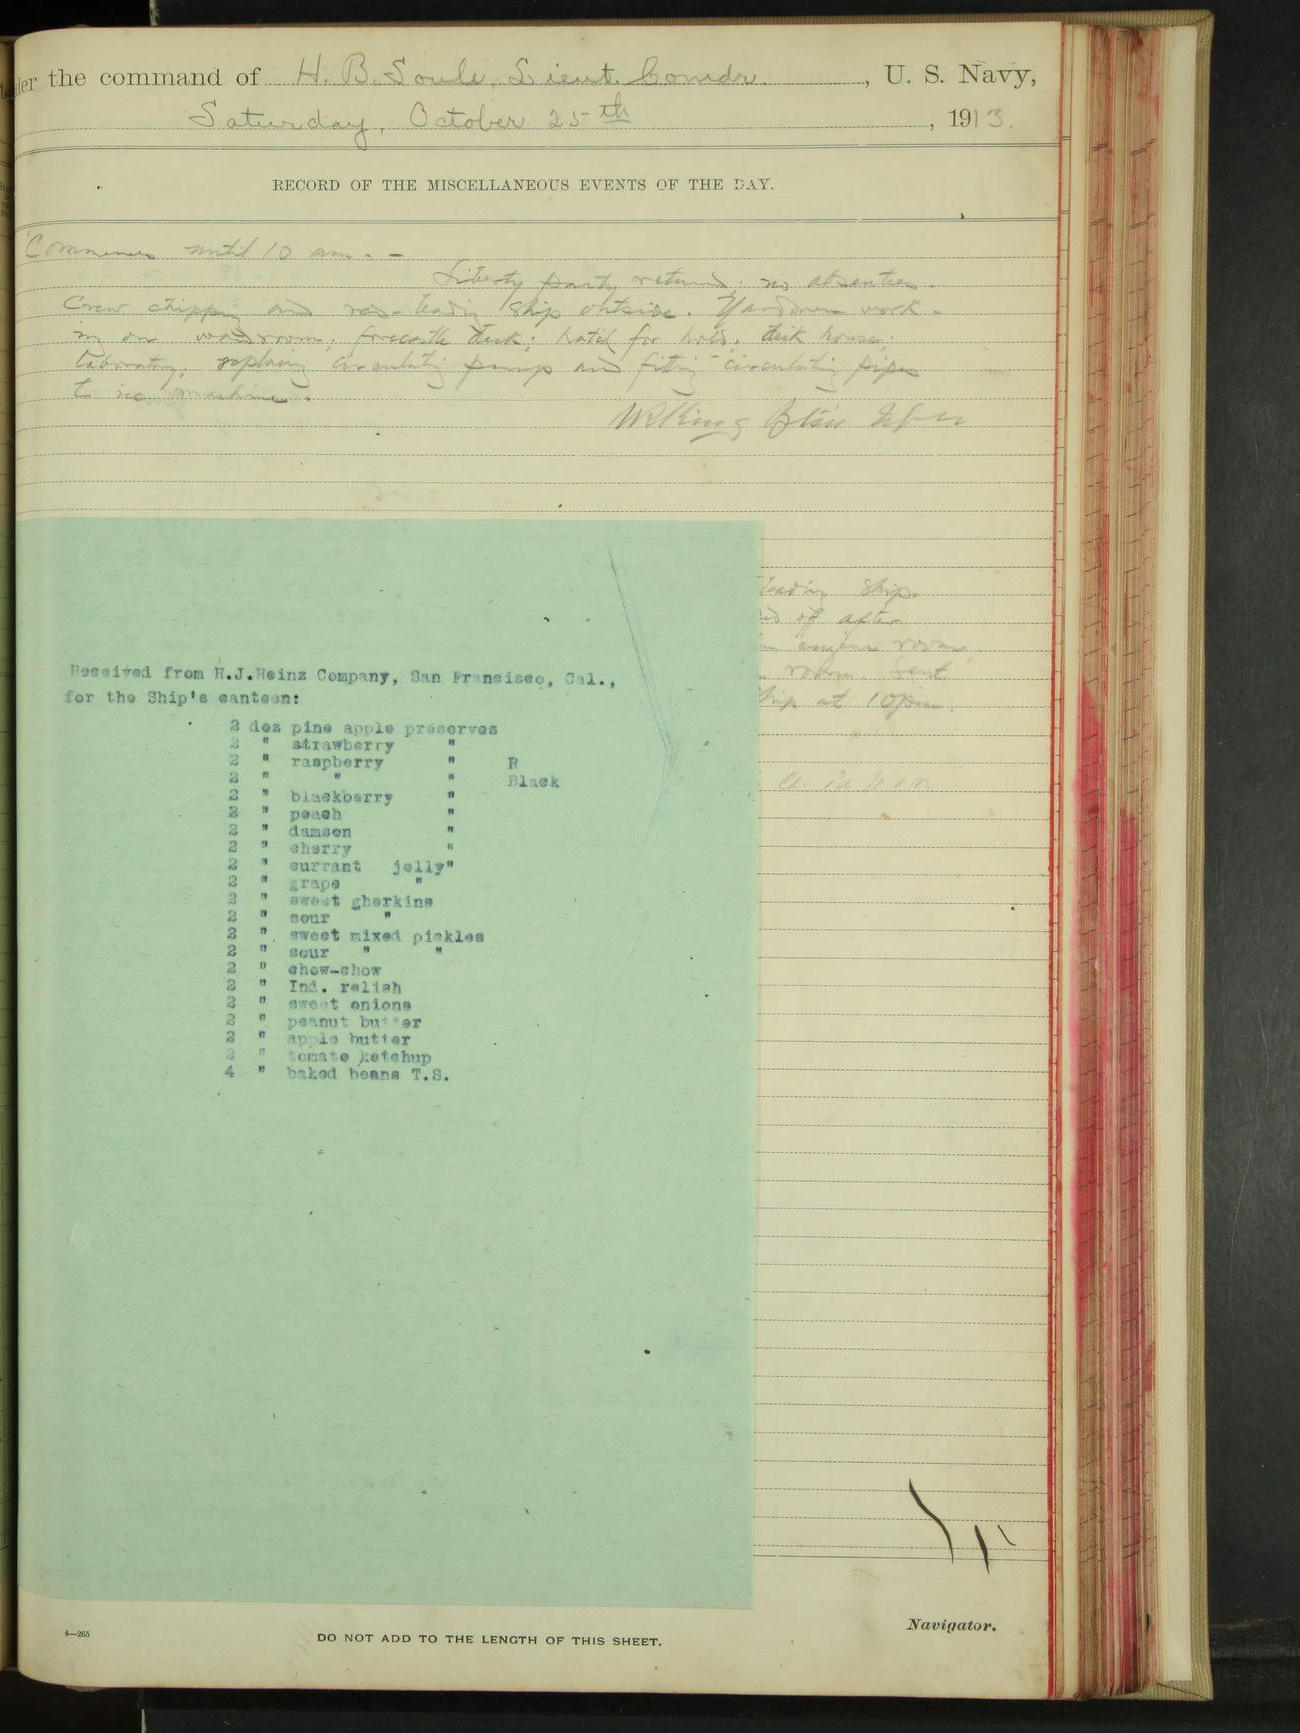 der the command of H. B. Soule, Lieut. Comdr., U. S. Navy,
Saturday, October 25th, 1913.
RECORD OF THE MISCELLANEOUS EVENTS OF THE DAY.
Commences until 10 am. -
Liberty party returned; no absentees.
Crew chipping and red-leading ship outside. Yardmen work-
ing on wardroom; forecastle deck; hatch for hold; deck house;
laboratory; replacing circulating pump and fitting circulating pipes
to ice machine.
leading ship.
off after
engine room
room. Sent
ship at 10 pm.
Received from H.J.Heinz Company, San Francisco, Cal.,
for the Ship's canteen:
2 doz pine apple preserves
2 " strawberry "
2 " raspberry " R
2 " " " Black
2 " blackberry "
2 " peach "
2 " damson "
2 " cherry "
2 " currant jelly"
2 " grape "
2 " sweet gherkins
2 " sour "
2 " sweet mixed pickles
2 " sour " "
2 " chow-chow
2 " Ind. relish
2 " sweet onions
2 " peanut butter
2 " apple butter
2 " tomato ketchup
4 " baked beans T.S.
Navigator.
4—265
DO NOT ADD TO THE LENGTH OF THIS SHEET.